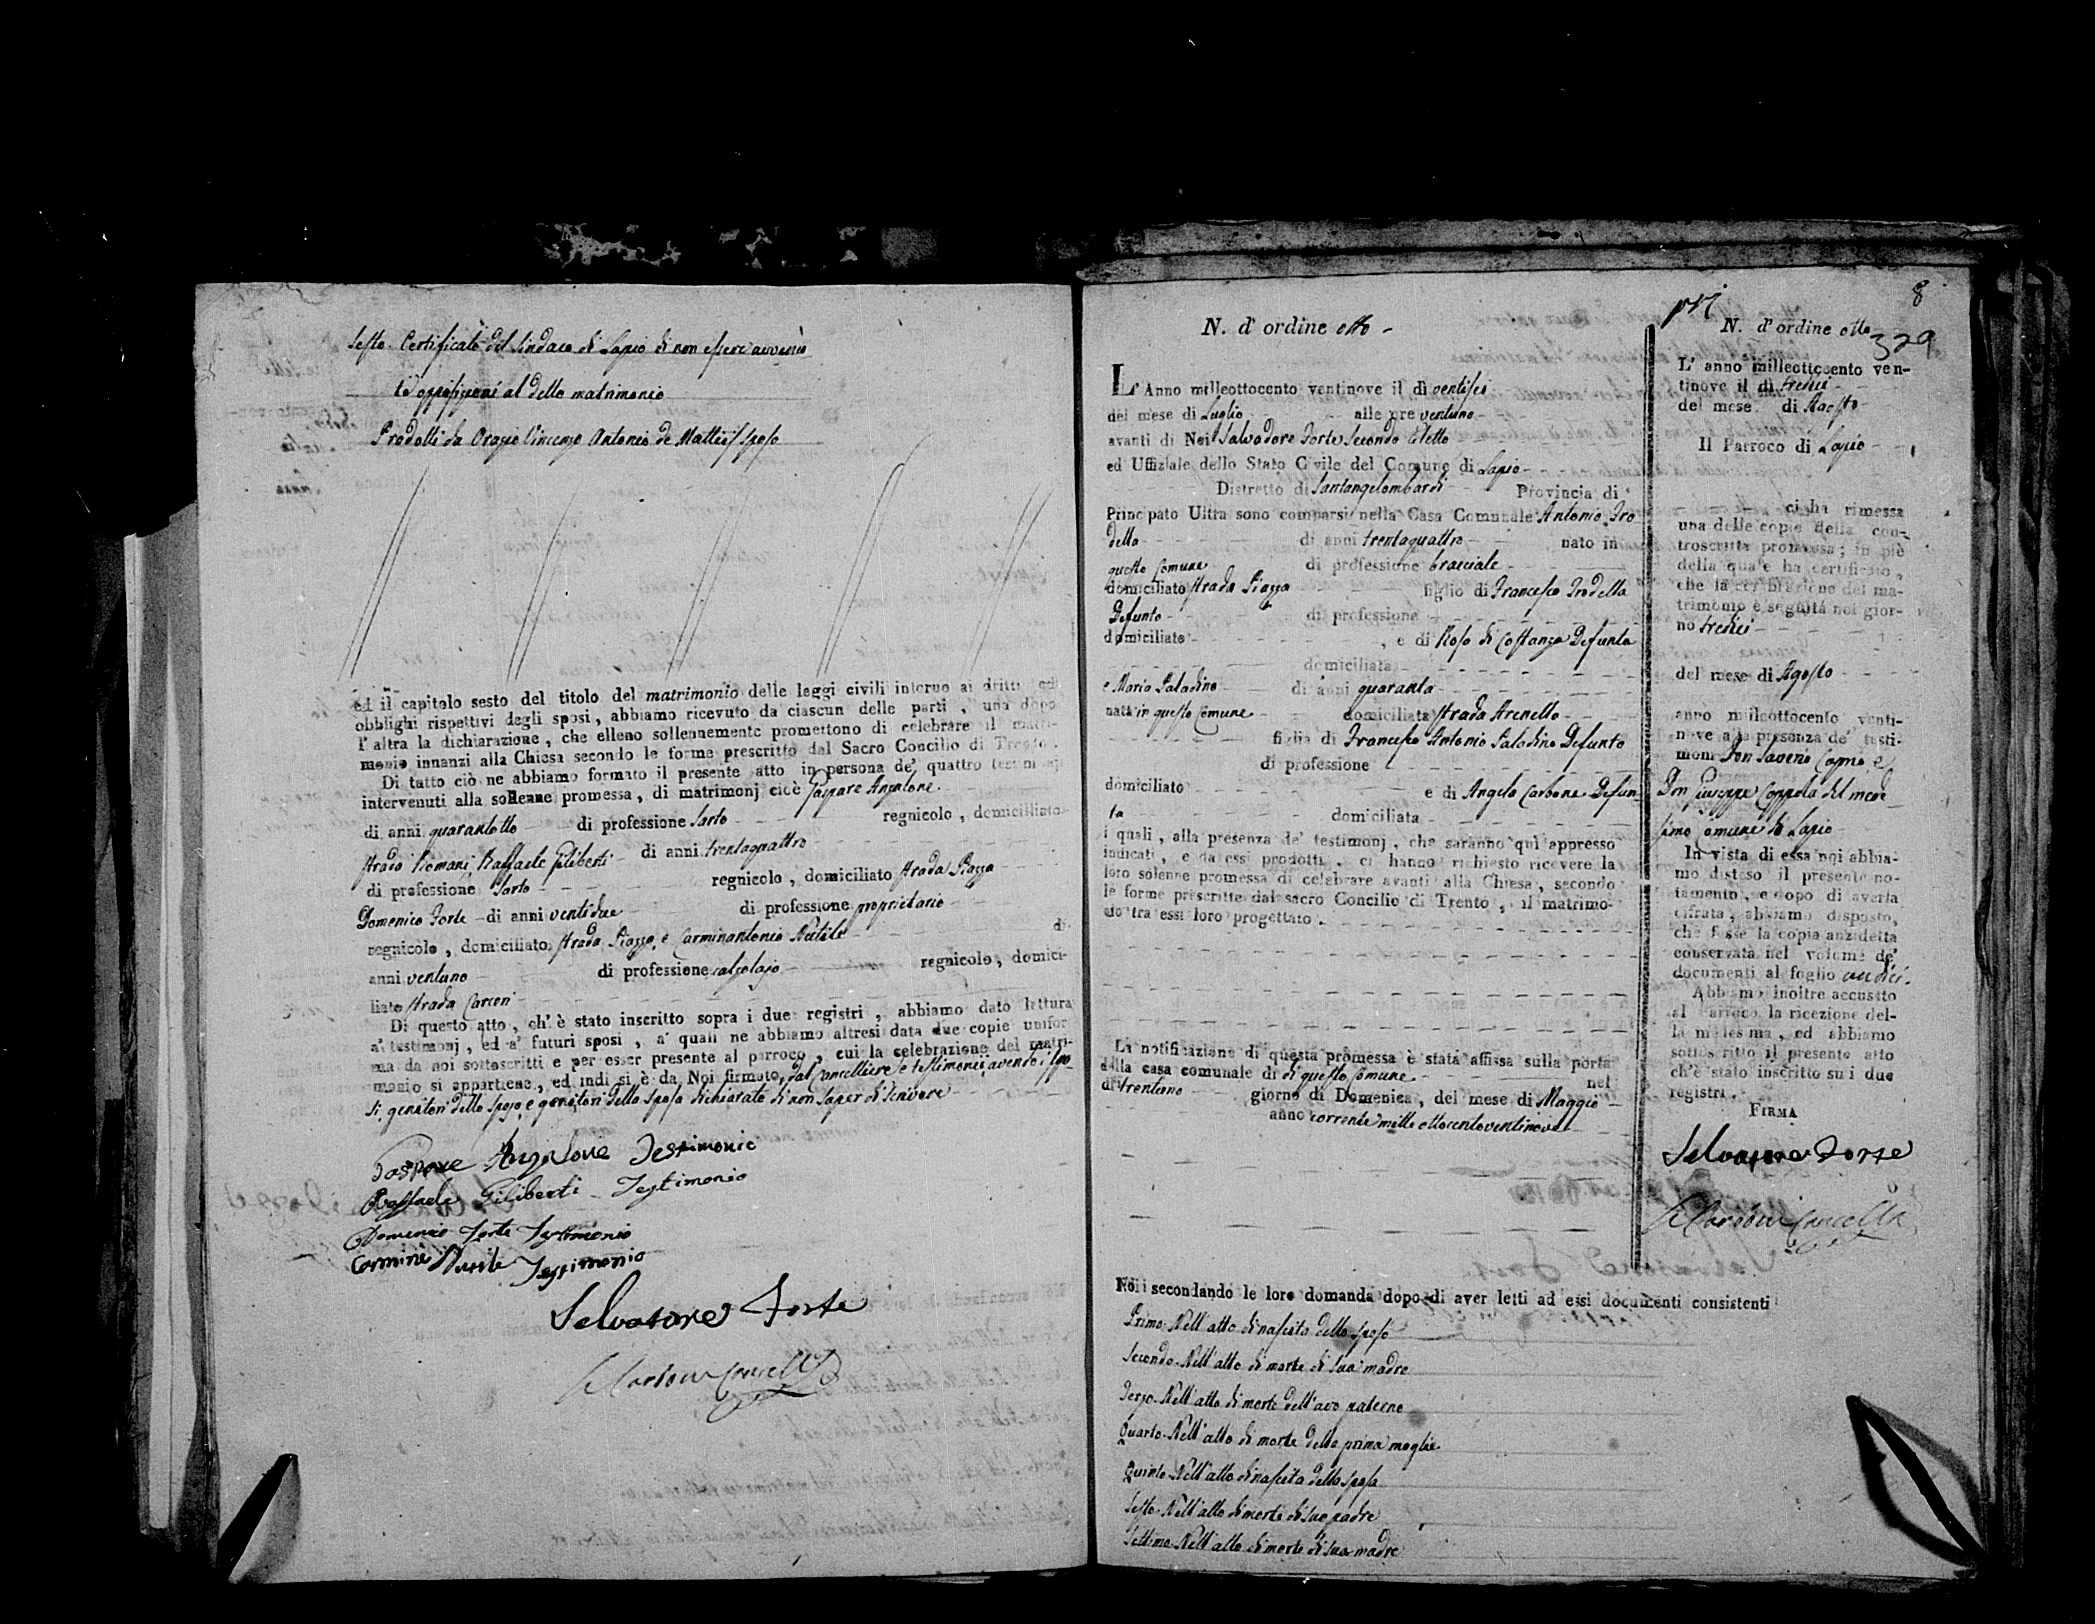 Sesto. Certificato del Sindaco di Lapio di non essere avvenu
te opposizioni al detto matrimonio
Prodotti da Orazio Vincenzo Antonio de Matteis sposo
ed il capitolo sesto del titolo del matrimonio delle leggi civili intorno ai dritti ed
obblighi rispettivi degli sposi, abbiamo ricevuto da ciascun delle parti, una dopo
l'altra la dichiarazione, che elleno sollennemente promettono di celebrare il matri-
monio innanzi alla Chiesa secondo le forme prescritto dal Sacro Concilio di Trento.
Di tatto ciò ne abbiamo formato il presente atto in persona de' quattro testimonj
intervenuti alla sollenne promessa, di matrimonj cioè Gaspare Angalone
di anni quarantotto di professione Sarto regnicolo, domiciliato
Strada Romani, Raffaele Giliberti di anni trentaquattro
di professione Sarto regnicolo, domiciliato Strada Piazza
Domenico Forte di anni ventidue di professione proprietario
regnicolo, domiciliato Strada Piazza, e Carminantonio Nutile di
anni ventuno di professione calzolajo regnicolo, domici-
liato Strada Carceri
Di questo atto, ch'è stato inscritto sopra i due registri, abbiamo dato lettura
a' testimonj, ed a' futuri sposi, a' quali ne abbiamo altresì data due copie unifor
ma da noi sottoscritti e per esser presente al parroco, cui la celebrazione del matri-
monio si appartiene, ed indi si è da Noi firmato, dal Cancelliere e testimonii, avendo i spo-
si genitori dello sposo, e genitori della sposa dichiarato di non saper di scrivere
Gaspare Angalone Testimonio
Raffaele Giliberti Testimonio
Domenico Forte Testimonio
Carmine Nutile Testimonio
Salvatore Forte
8
N. d'ordine otto
L'Anno milleottocento ventinove il dì ventisei
del mese di Luglio alle ore ventuno
avanti di Noi Salvadore Forte Secondo Eletto
ed Uffiziale dello Stato Civile del Comune di Lapio
Distretto di Santangelombardi Provincia di
Principato Ultra sono comparsi nella Casa Comunale Antonio Tro
della di anni trentaquattro nato in
questo Comune di professione bracciale
domiciliato Strada Piazza figlio di Francesco Trodella
Defunto di professione
domiciliato e di Rosa di Costanzo Defunta
domiciliata
e Maria Paladino di anni quaranta
nata in questo Comune domiciliata Strada Arenella
figlia di Francesco Antonio Paladino Defunto
di professione
domiciliato e di Angela Carbone Defun
ta domiciliata
i quali, alla presenza de' testimonj, che saranno quì appresso
indicati, e da essi prodotti, ci hanno richiesto ricevere la
loro solenne promessa di celebrare avanti alla Chiesa, secondo
le forme prescritte dal sacro Concilio di Trento, il matrimo-
nio tra essi loro progettato.
La notificazione di questa promessa è stata affissa sulla porta
della casa comunale di di questo Comune nel
dì trentuno giorno di Domenica, del mese di Maggio
anno corrente mille ottocentoventinove
Noi secondando le loro domanda dopo di aver letti ad essi documenti consistenti
Primo. Nell'atto di nascita dello sposo
Secondo. Nell'atto di morte di sua madre
Terzo. Nell'atto di morte dell'avo paterno
Quarto. Nell'atto di morte della prima moglie
Quinto. Nell'atto di nascita della sposa
Sesto. Nell'atto di morte di suo padre
Settimo. Nell'atto di morte di sua madre
N. d'ordine otto
329
L'anno milleottocento ven-
tinove il dì tredici
del mese di Agosto
Il Parroco di Lapio
ci ha rimessa
una delle copie della con-
troscritta promessa; in piè
della quale ha certificato,
che la celebrazione del ma-
trimonio è seguita nel gior-
no tredici
del mese di Agosto
anno milleottocento venti-
nove alla presenza de' testi-
moni Don Saverio Caprio, e
Don Giuseppe Coppola del mede
simo Comune di Lapio
In vista di essa noi abbia-
mo disteso il presente no-
tamento, e dopo di averla
cifrata, abbiamo disposto,
che fosse la copia anzidetta
conservata nel volume de'
documenti al foglio undici.
Abbiamo inoltre accusato
al Parroco la ricezione del-
la medesima, ed abbiamo
sottoscritto il presente atto
ch'è stato inscritto su i due
registri.
FIRMA
Salvatore Forte